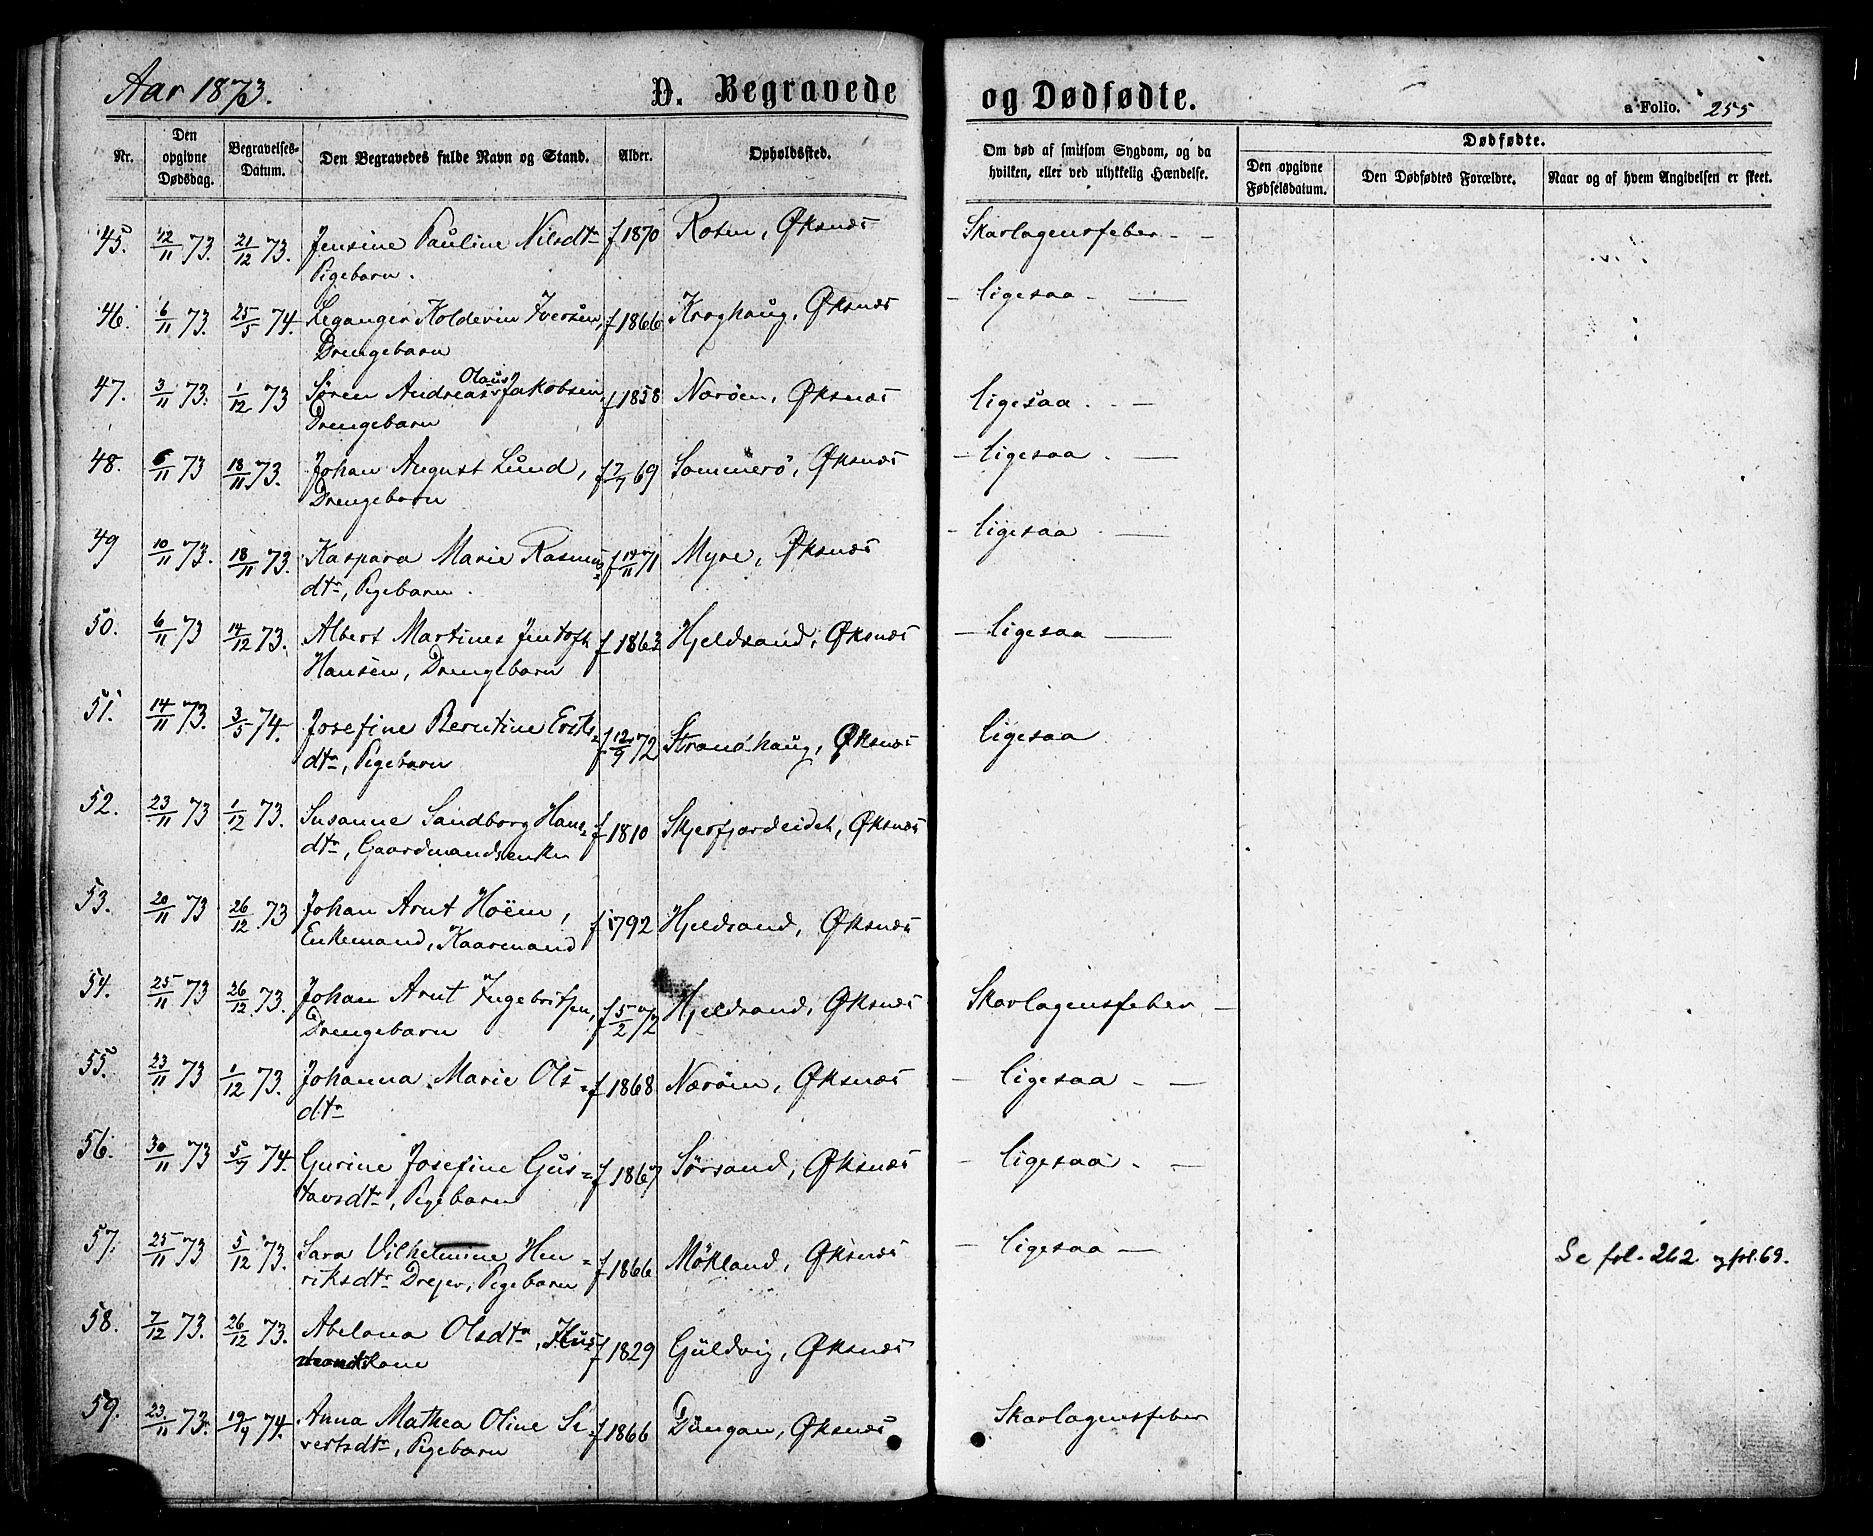 Aar 1873. D. Begravede og Dødfødte. a Folio. 255
Nr. Den opgivne Dødsdag. Begravelses-Datum. Den Begravedes fulde Navn og Stand. Alder. Opholdssted. Om død af smitsom Sygdom, og da hvilken, eller ved ulykkelig Hændelse. Dødfødte. Den opgivne Fødselsdatum. Den Dødfødtes Forældre. Naar og af hvem Angivelsen er skeet.
45. 12/11 73. 21/12 73. Jensine Pauline Nilsdtr f 1870 Rosen, Øksnæs Skarlagensfeber - -
Pigebarn.
46. 6/11 73. 25/5 74. Leganger Koldevin Iversen, f 1866 Kroghaug, Øksnæs - ligesaa - —
Drengebarn
47. 3/11 73. 1/12 73 Søren Andreas Olaus Jakobsen f 1858 Narøen, Øksnæs ligesaa - —
Drengebarn
48. 6/11 73 18/11 73. Johan August Lund, f 2/7 69 Sommerø, Øksnæs - ligesaa - —
Drengebarn
49 10/11 73. 18/11 73. Kaspara Marie Rasmus= f 14/11 71 Myre, Øksnæs - ligesaa - —
dtr, Pigebarn.
50. 6/11 73 14/12 73. Albert Martines Jentoft f 1863 Hjeldsand, Øksnæs - ligesaa —
Hansen, Drengebarn
51. 14/11 73. 3/5 74. Josefine Berntine Eriks= f 12/9 72 Strandhaug, Øksnæs ligesaa
dtr, Pigebarn
52. 23/11 73 1/12 73. Susanne Sandborg Hans= f 1810 Skjerfjordeidet, Øksnæs
dtr, Gaardmandsenke
53. 20/11 73 26/12 73 Johan Arnt Hoëm, f 1792 Hjeldsand, Øksnæs
Enkemand, Kaarmand
54. 25/11 73 26/12 73. Johan Arnt Ingebritsen, f 5/2 72 Hjeldsand, Øksnæs Skarlagensfeber —
Drengebarn
55. 23/11 73 1/12 73. Johanna Marie Ols= f 1868 Nærøen, Øksnæs - ligesaa - —
dtr
56. 30/11 73 5/7 74. Gurine Josefine Gus= f 1867 Sørsand, Øksnæs - ligesaa - —
tavsdtr, Pigebarn
57. 25/11 73 5/12 73. Sara Vilhelmine Hen= f 1866 Møkland, Øksnæs - ligesaa — Se fol. 262 og fol. 69.
riksdtr Drejer, Pigebarn
58. 7/12 73. 26/12 73. Abelona Olsdtr, Hus= f 1829 Guldvig, Øksnæs
mandskone
59. 23/11 73. 19/9 74. Anna Mathea Oline Si= f 1866 Tüngan, Øksnæs Skarlagensfeber
vertsdtr, Pigebarn